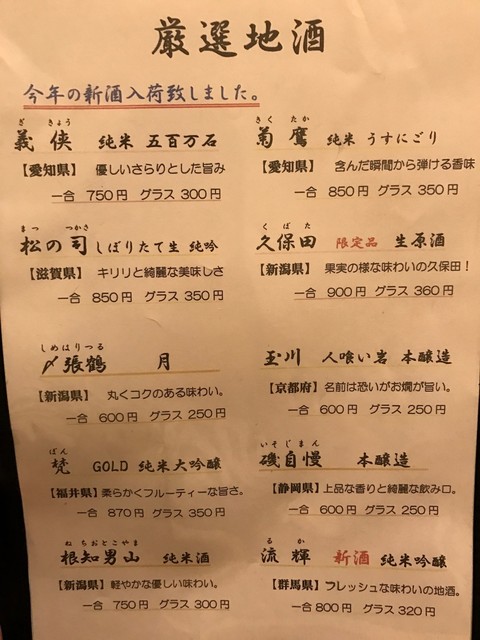 厳選地酒
今年の新酒入荷致しました。
ぎ きょう
義侠 純米 五百万石
【愛知県】 優しいさらりとした旨み
一合 750円 グラス 300円
まつ つかさ
松の司 しぼりたて生 純吟
【滋賀県】 キリリと綺麗な美味しさ
一合 850円 グラス 350円
しめはりつる
〆張鶴 月
【新潟県】 丸くコクのある味わい。
一合 600円 グラス 250円
ぼん
梵 GOLD 純米大吟醸
【福井県】 柔らかくフルーティーな旨さ。
一合 870円 グラス 350円
ねちおとこやま
根知男山 純米酒
【新潟県】 軽やかな優しい味わい。
一合 750円 グラス 300円
きく たか
菊鷹 純米 うすにごり
【愛知県】 含んだ瞬間から弾ける香味
一合 850円 グラス 350円
くぼた
久保田 限定品 生原酒
【新潟県】 果実の様な味わいの久保田!
一合 900円 グラス 360円
玉川 人喰い岩 本醸造
【京都府】 名前は恐いがお燗が旨い。
一合 600円 グラス 250円
いそじまん
磯自慢 本醸造
【静岡県】 上品な香りと綺麗な飲み口。
一合 600円 グラス 250円
るか
流輝 新酒 純米吟醸
【群馬県】 フレッシュな味わいの地酒。
一合 800円 グラス 320円